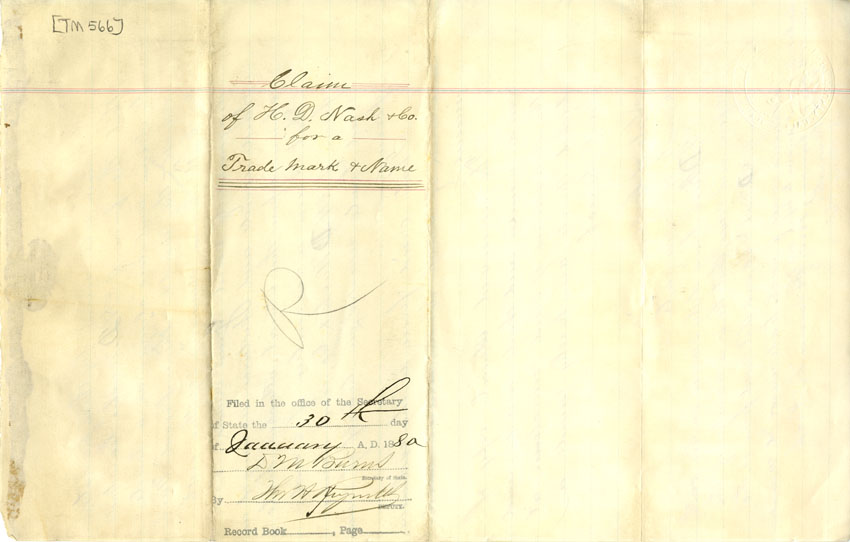 [TM 566]
Claim
of H. D. Nash & Co.
for a
Trade Mark & Name
R
Filed in the office of the Secretary
of State the 30th day
of January A. D. 1880
D M Burns
Secretary of State.
By Wm H Reynolds
DEPUTY.
Record Book , Page .